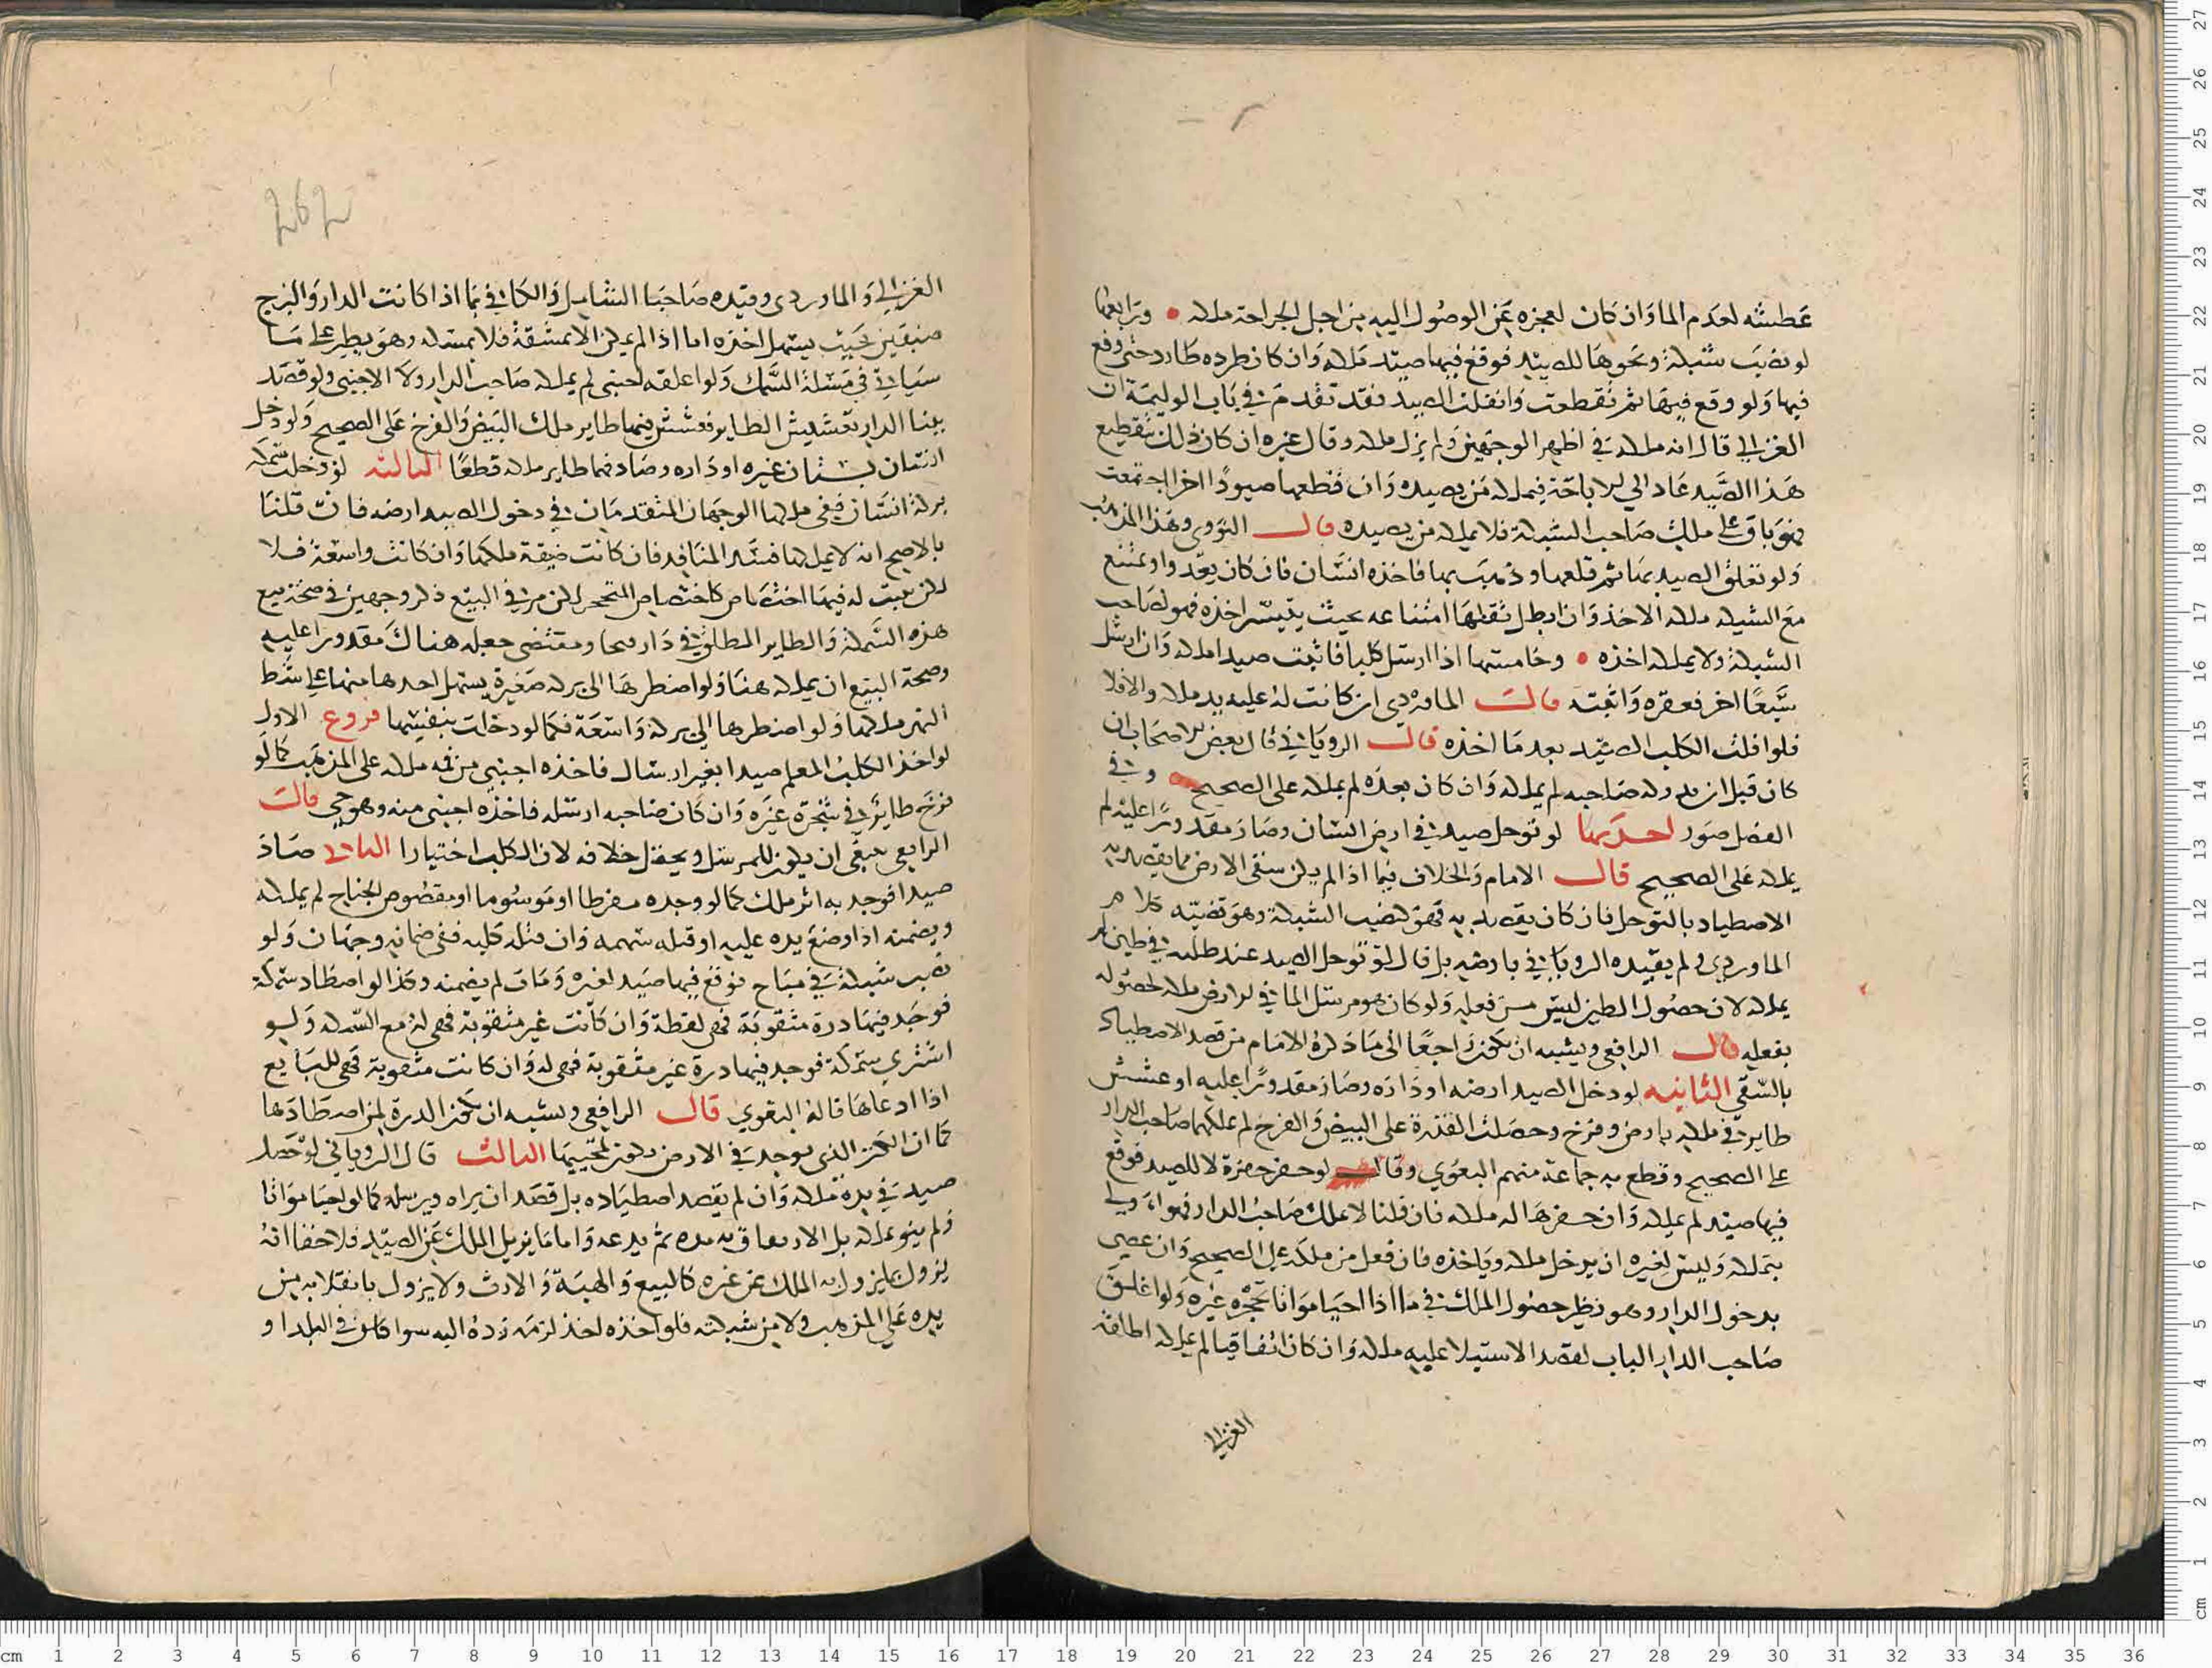 عطشه لعدم الما وان كان لعجزه عن الوصول اليه من اجل الجراحة ملكه • ورابعها
لو نصب شبكة ونحوها للصيد فوقع فيها صيد ملكه وان كان طرده طارد حتى وقع
فيها ولو وقع فيها ثم تقطعت وانفلت الصيد فقد تقدم في باب الوليمة ان
الغزالي قال انه ملكه في اظهر الوجهين ولم يزل ملكه وقال غيره ان كان ذلك بتقطيع
هذا الصيد عاد الي الاباحة فيملكه من يصيده وان قطعها صيود اخر اجتمعت
فهو باق على ملك صاحب الشبكة فلا يملكه من يصيده قال النووي وهذا المذهب
ولو تعلق الصيد بها ثم قلعها وذهب بها فاخذه انسان فان كان يعدوا ويمتنع
مع الشبكة ملكه الاخذ وان ابطل ثقلها امتناعه بحيث يتيسر اخذه فهو لصاحب
الشبكة ولا يملكه اخذه • وخامستها اذا ارسل كلبا فاثبت صيدا ملكه وان ارسل
سبعا اخر فعقره واثبته قال الماوردي ان كانت له عليه يد ملكه والا فلا
فلو افلت الكلب الصيد بعد ما اخذه قال الروياني قال بعض الاصحاب ان
كان قبل ان يدركه صاحبه لم يملكه وان كان بعده لم يملكه على الصحيح وفي
الفصل صور احديها لو توحل صيد في ارض انسان وصار مقدورا عليه لم
يملكه على الصحيح قال الامام والخلاف فيما اذا لم يكن سقى الارض مما يقصد به
الاصطياد بالتوحل فان كان يقصد به فهو كنصب الشبكة وهو قضيته كلام
الماوردي ولم يقيده الروياني بارضه بل قال لو توحل الصيد عند طلبه في طين لم
يملكه لان حصول الطين ليس من فعله ولو كان هو مرسل الما في الارض ملكه لحصوله
بفعله قال الرافعي ويشبه ان يكون راجعا الى ما ذكره الامام من قصد الاصطياد
بالسقي الثانيه لو دخل الصيد ارضه او داره وصار مقدورا عليه او عشش
طاير في ملكه باض وفرخ وحصلت القدرة على البيض والفرخ لم يملكهما صاحب الدار
على الصحيح وقطع به جماعة منهم البغوي وقال لو حفر حفرة لا للصيد فوقع
فيها صيد لم يملكه وان حفرها له ملكه فان قلنا لا يملك صاحب الدار فهو اولى
بتملكه وليس لغيره ان يدخل ملكه وياخذه فان فعل من ملكه على الصحيح وان عصى
بدخول الدار وهو نظير حصول الملك في ما اذا احيا مواتا تحجره غيره ولو اغلق
صاحب الدار الباب لقصد الاستيلا عليه ملكه وان كان اتفاقيا لم يملكه اطلقه
الغزالي
الغزالي والماوردي وقيده صاحبا الشامل والكافي بما اذا كانت الدار والبرج
ضيقين بحيث يسهل اخذه اما اذا لم يمكن الا بمشقة فلا يملكه وهو يطرد على ما
سياتي في مسئلة السمك ولو اغلقه اجنبي لم يملكه صاحب الدار ولا الاجنبي ولو قصد
ببنا الدار تعشيش الطاير فعشش فيها طاير ملك البيض والفرخ على الصحيح ولو دخل
انسان بستان غيره او داره وصاد فيها طاير ملكه قطعا الثالثه لو دخلت سمكة
بركة انسان ففي ملكها الوجهان المتقدمان في دخول الصيد ارضه فان قلنا
بالاصح انه لا يملكها فسد المنافذ فان كانت ضيقة ملكها وان كانت واسعة فلا
لكن يثبت له فيها اختصاص كاختصاص المتحجر لكن مر في البيع ذكر وجهين في صحة بيع
هذه السمكة والطاير المطلق في دار فيحا ومقتضى جعله هناك مقدورا عليه
وصحة البيع ان يملكه هنا ولو اضطرها الى بركة صغيرة يسهل اخذها منها على شط
النهر ملكها ولو اضطرها الى بركة واسعة فكما لو دخلت بنفسها فروع الاول
لو اخذ الكلب المعلم صيدا بغير ارسال فاخذه اجنبي من فمه ملكه على المذهب كما لو
فرخ طاير في شجرة غيره وان كان صاحبه ارسله فاخذه اجنبي منه وهو حي قال
الرافعي ينبغي ان يكون للمرسل ويحتمل خلافه لان للكلب اختيارا الثاني صاد
صيدا فوجد به اثر ملك كما لو وجده مقرطا او موسوما او مقصوص الجناح لم يملكه
ويضمنه اذا وضع يده عليه او قتله سهمه وان قتله كلبه ففي ضمانه وجهان ولو
نصب شبكة في مباح فوقع فيها صيد لغيره ومات لم يضمنه وكذا لو اصطاد سمكة
فوجد فيها درة مثقوبة فهي لقطة وان كانت غير مثقوبة فهي له مع السمكة ولو
اشترى سمكة فوجد فيها درة غير مثقوبة فهي له وان كانت مثقوبة فهي للبايع
اذا ادعاها قاله البغوي قال الرافعي ويشبه ان يكون الدرة لمن اصطادها
كما ان الكنز الذي يوجد في الارض يكون لمحييها الثالث قال الروياني لو حصل
صيد في يده ملكه وان لم يقصد اصطياده بل قصد ان يراه ويرسله كما لو احيا مواتا
ولم ينو تملكه بل الارتفاق به مدة ثم يدعه واما ما يزيل الملك عن الصيد فلا خفا انه
يزول بما يزول به الملك عن غيره كالبيع والهبة والارث ولا يزول بانفلاته من
يده على المذهب ولا من شبكته فلو اخذه احد لزمه رده اليه سوا كان في البلد او